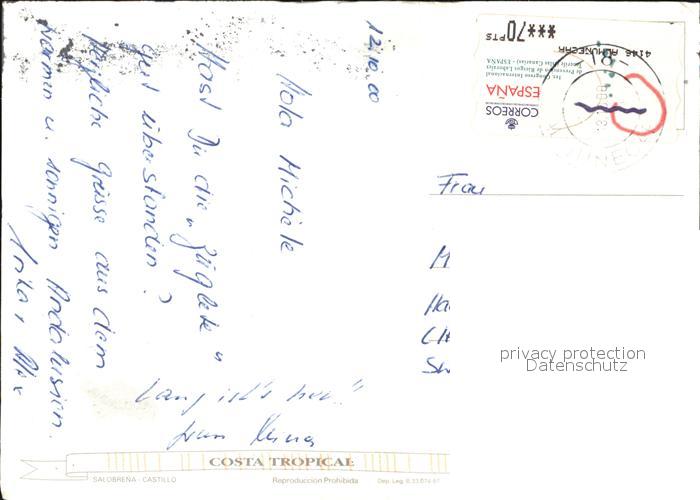 12.10.00
Hola Michèle
Hast Du die "Züglete"
gut überstanden?
Herzliche Grüsse aus dem
warmen u. sonnigen Andalusien.
Lang ist's her!
***70 PTS
4146 ALMUÑECAR
1er. Congreso Internacional
de Prevención de Riesgos Laborales
Tenerife (Islas Canarias) - ESPAÑA
ESPAÑA
CORREOS
Frau
M
Ha
CH
Sw
privacy protection
Datenschutz
COSTA TROPICAL
SALOBREÑA - CASTILLO
Reproducción Prohibida
Dep. Leg. B.33.074-97